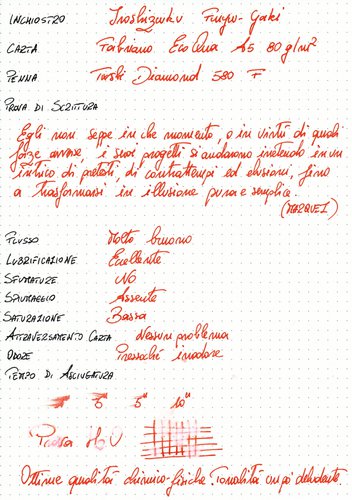 INCHIOSTRO Iroshizuku Fuyu-Gaki
CARTA Fabriano EcoQua A5 80 g/m²
PENNA Twsbi Diamond 580 F
PROVA DI SCRITTURA
Egli non seppe in che momento, o in virtù di quali
forze avverse, i suoi progetti si andarono inetendo in un
intrico di pretesti, di contrattempi ed elusioni, fino
a trasformarsi in illusione pura e semplice.
(MARQUEZ)
FLUSSO Molto buono
LUBRIFICAZIONE Eccellente
SFUMATURE No
SPIURAGGIO Assente
SATURAZIONE Bassa
ATTRAVERSAMENTO CARTA Nessun problema
ODORE Pressoché inodore
TEMPO DI ASCIUGATURA
5" 10"
Prova H2O
Ottime qualità chimico-fisiche. Tonalità un po' deludente.